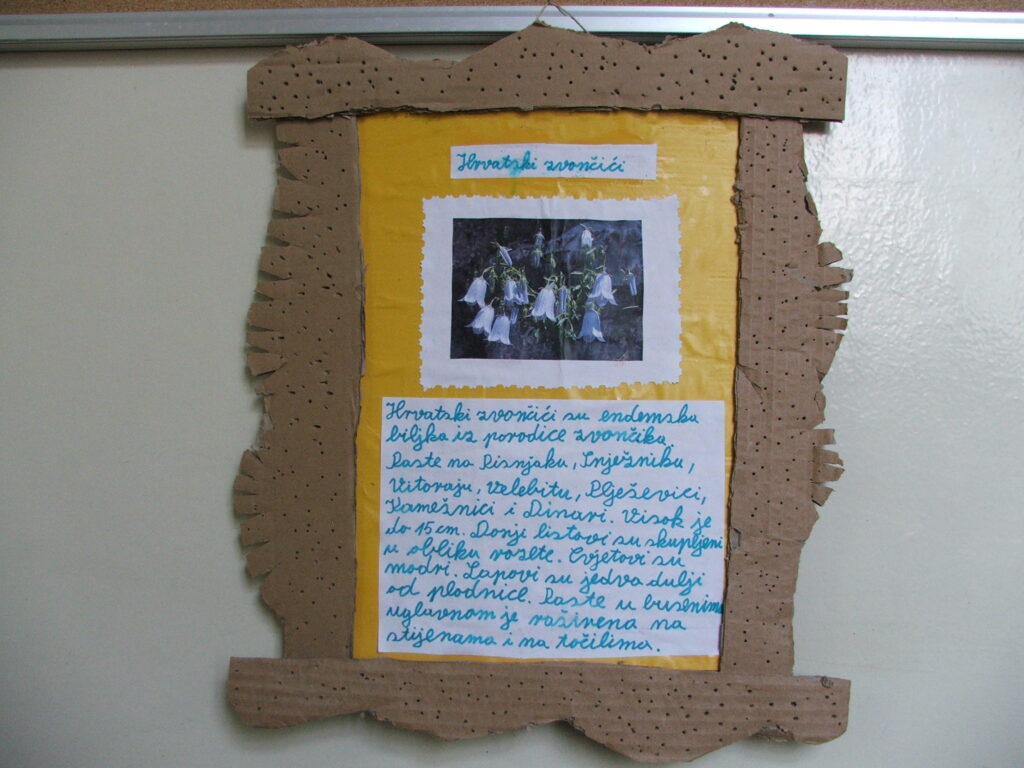 Hrvatski zvončići
Hrvatski zvončići su endemska
biljka iz porodice zvončika.
Raste na Risnjaku, Snježniku,
Vitoraju, Velebitu, Plješevici,
Kamešnici i Dinari. Visok je
do 15 cm. Donji listovi su skupljeni
u obliku rozete. Cvjetovi su
modri. Lapovi su jedva dulji
od plodnice. Raste u busenima
uglavnom je raširena na
stijenama i na točilima.